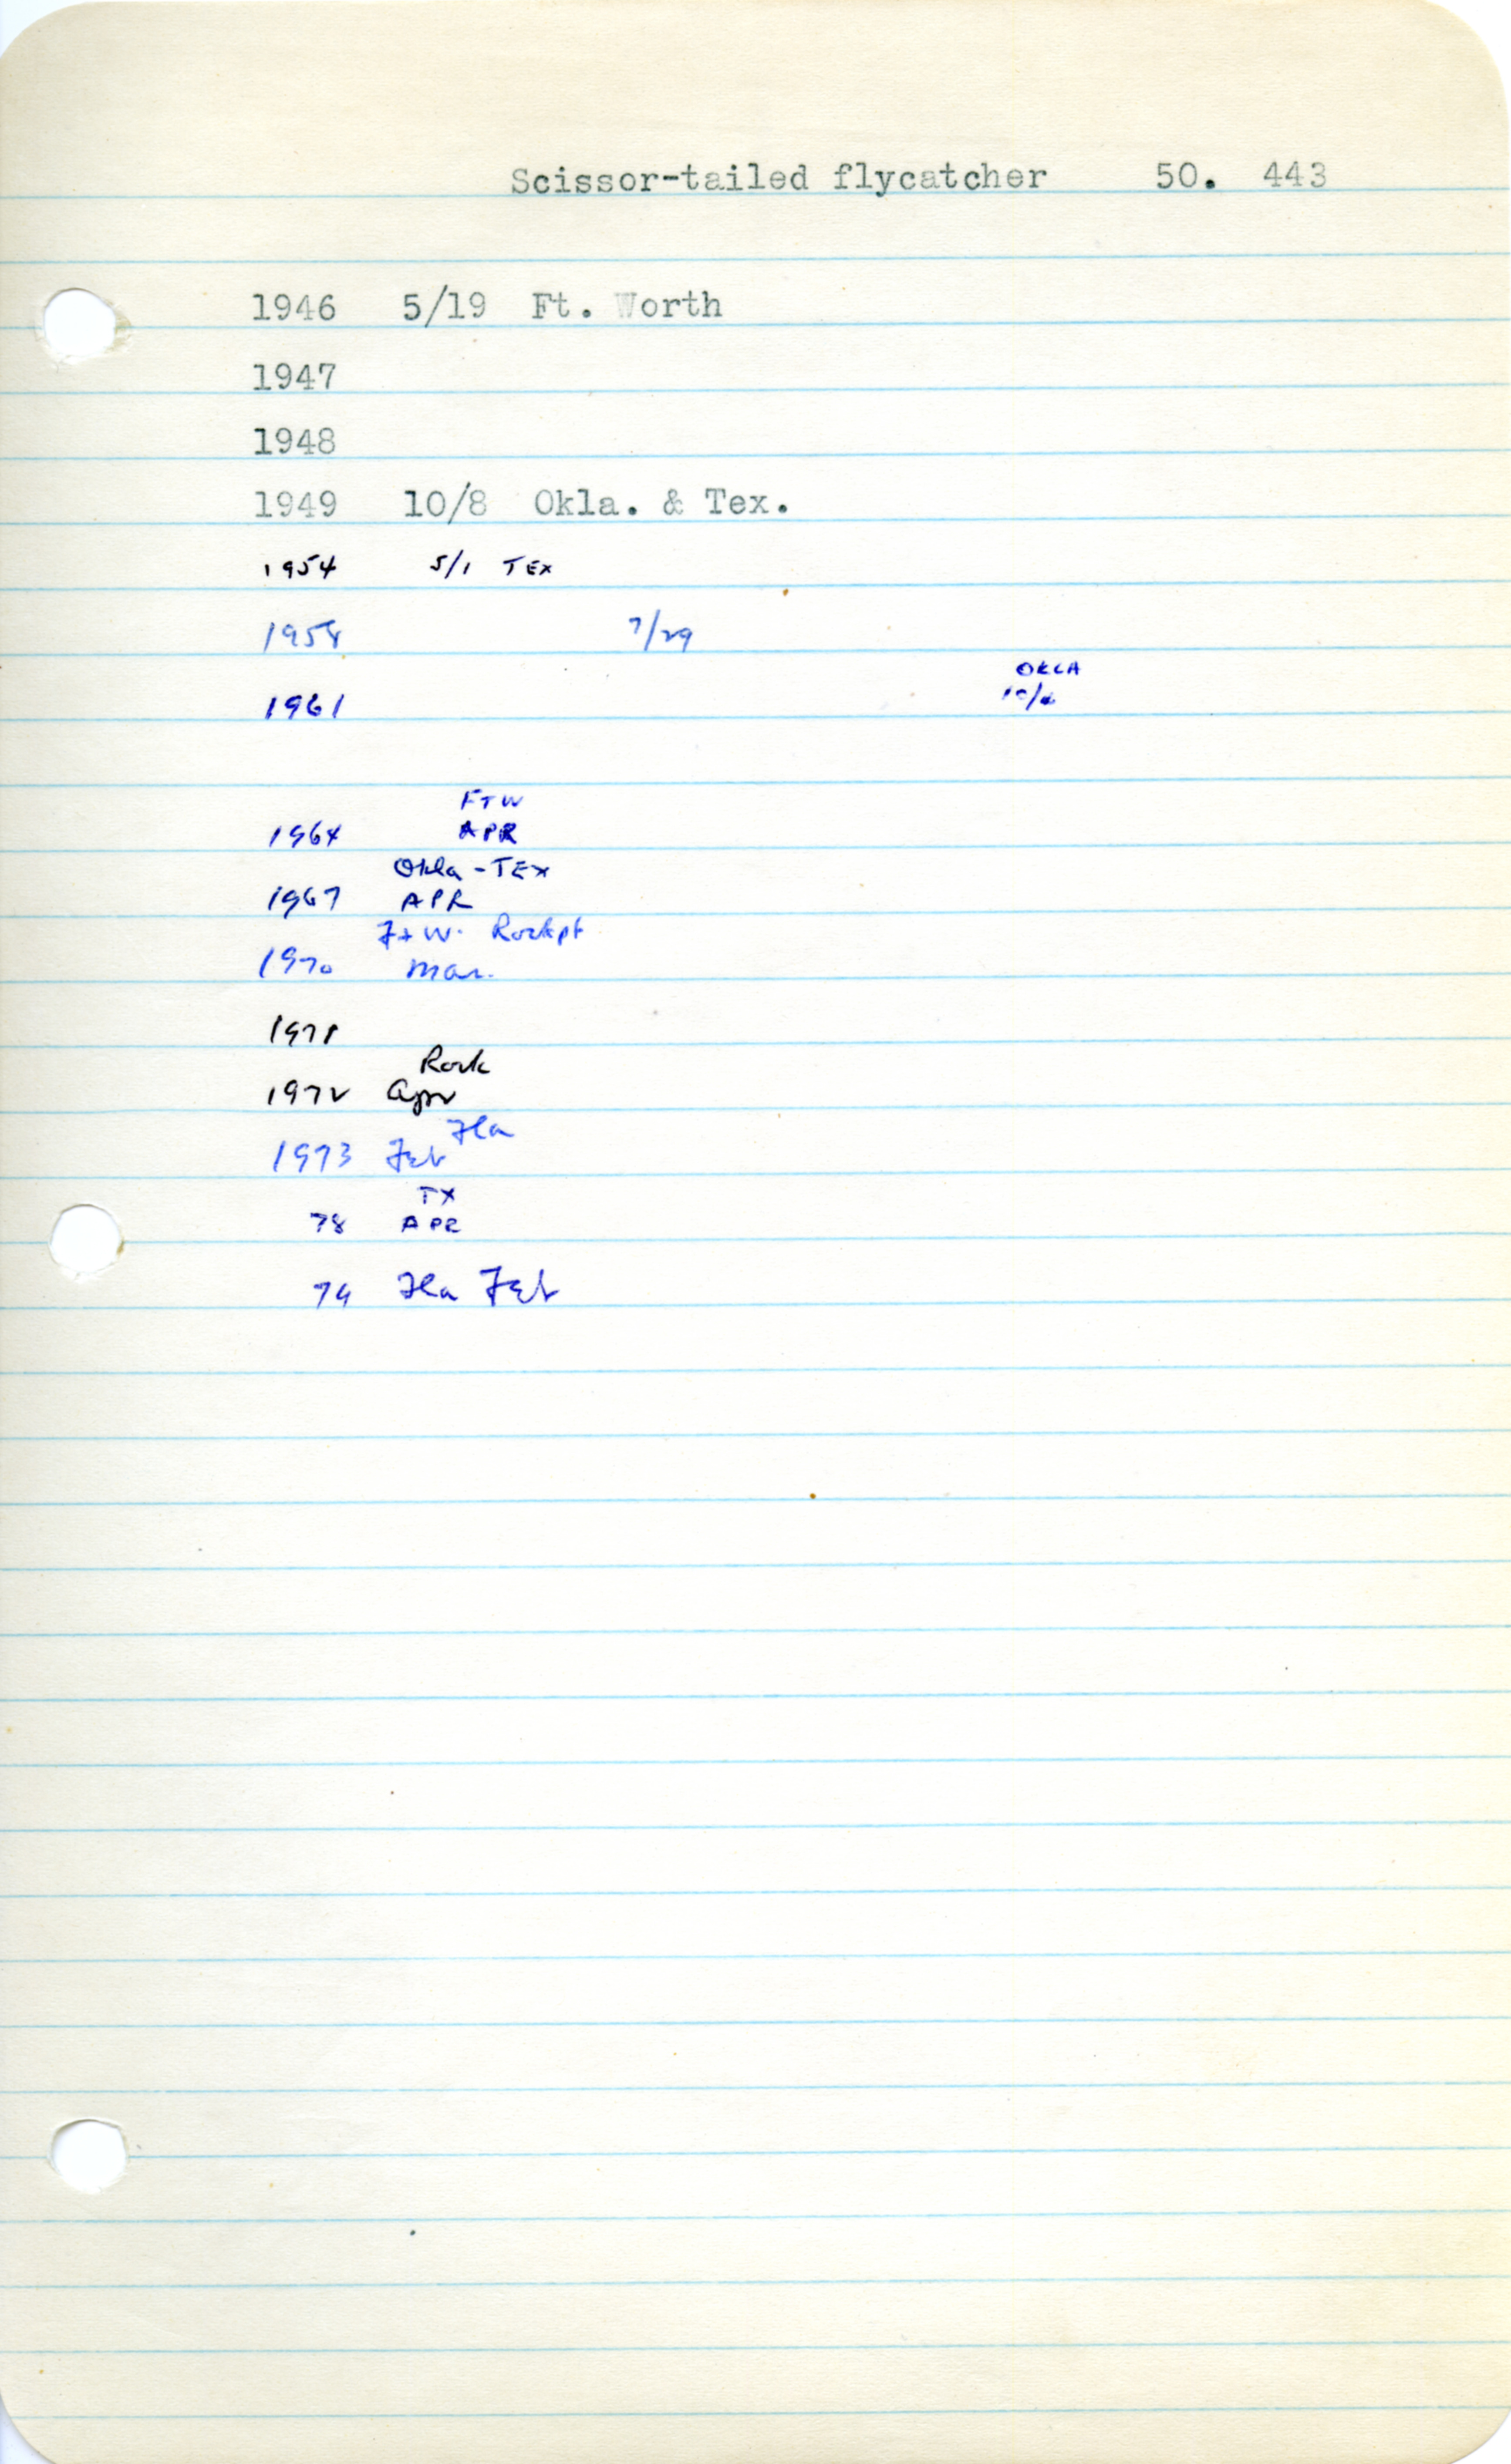 Scissor-tailed flycatcher 50. 443
1946 5/19 Ft. Worth
1947
1948
1949 10/8 Okla. & Tex.
1954 5/1 TEX
1958 7/29
OKLA
1961
FTW
1964 APR
Okla - TEX
1967 APR
Ft W. Rockpt
1970 Mar.
1971
Rock
1972 Apr
Fla
1973 Feb
TX
78 APR
79 Fla Feb